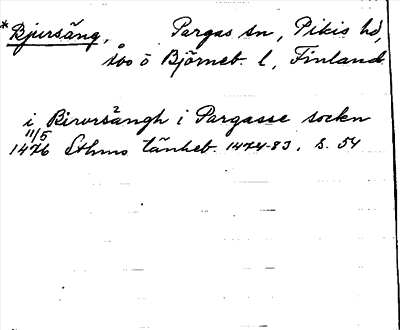 *Bjursäng, Pargas sn, Pikis hd,
Åbo o Björneb. l, Finland.
i Birursängh i Pargasse sockn
11/5
1476 Sthms tänkeb. 1474-83, s. 54